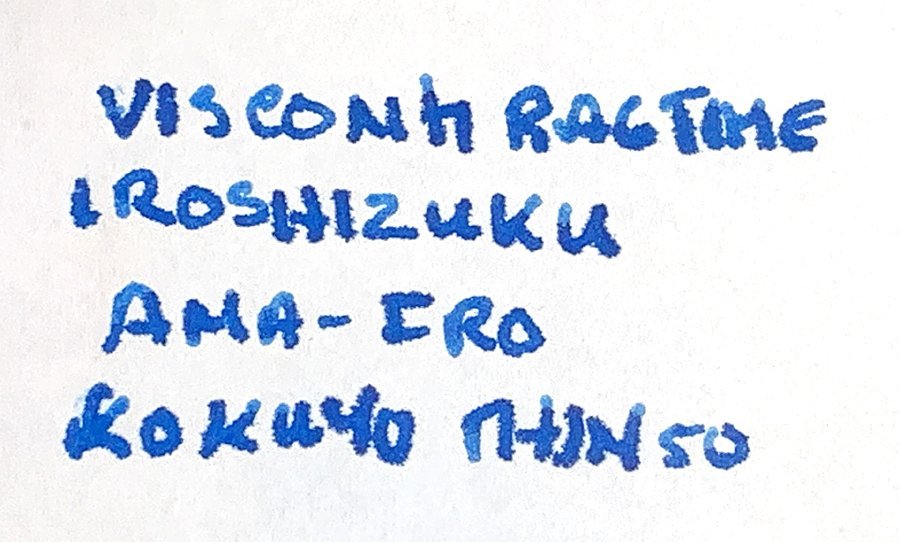 VISCONTI RAGTIME
IROSHIZUKU
AMA-IRO
KOKUYO THIN 50